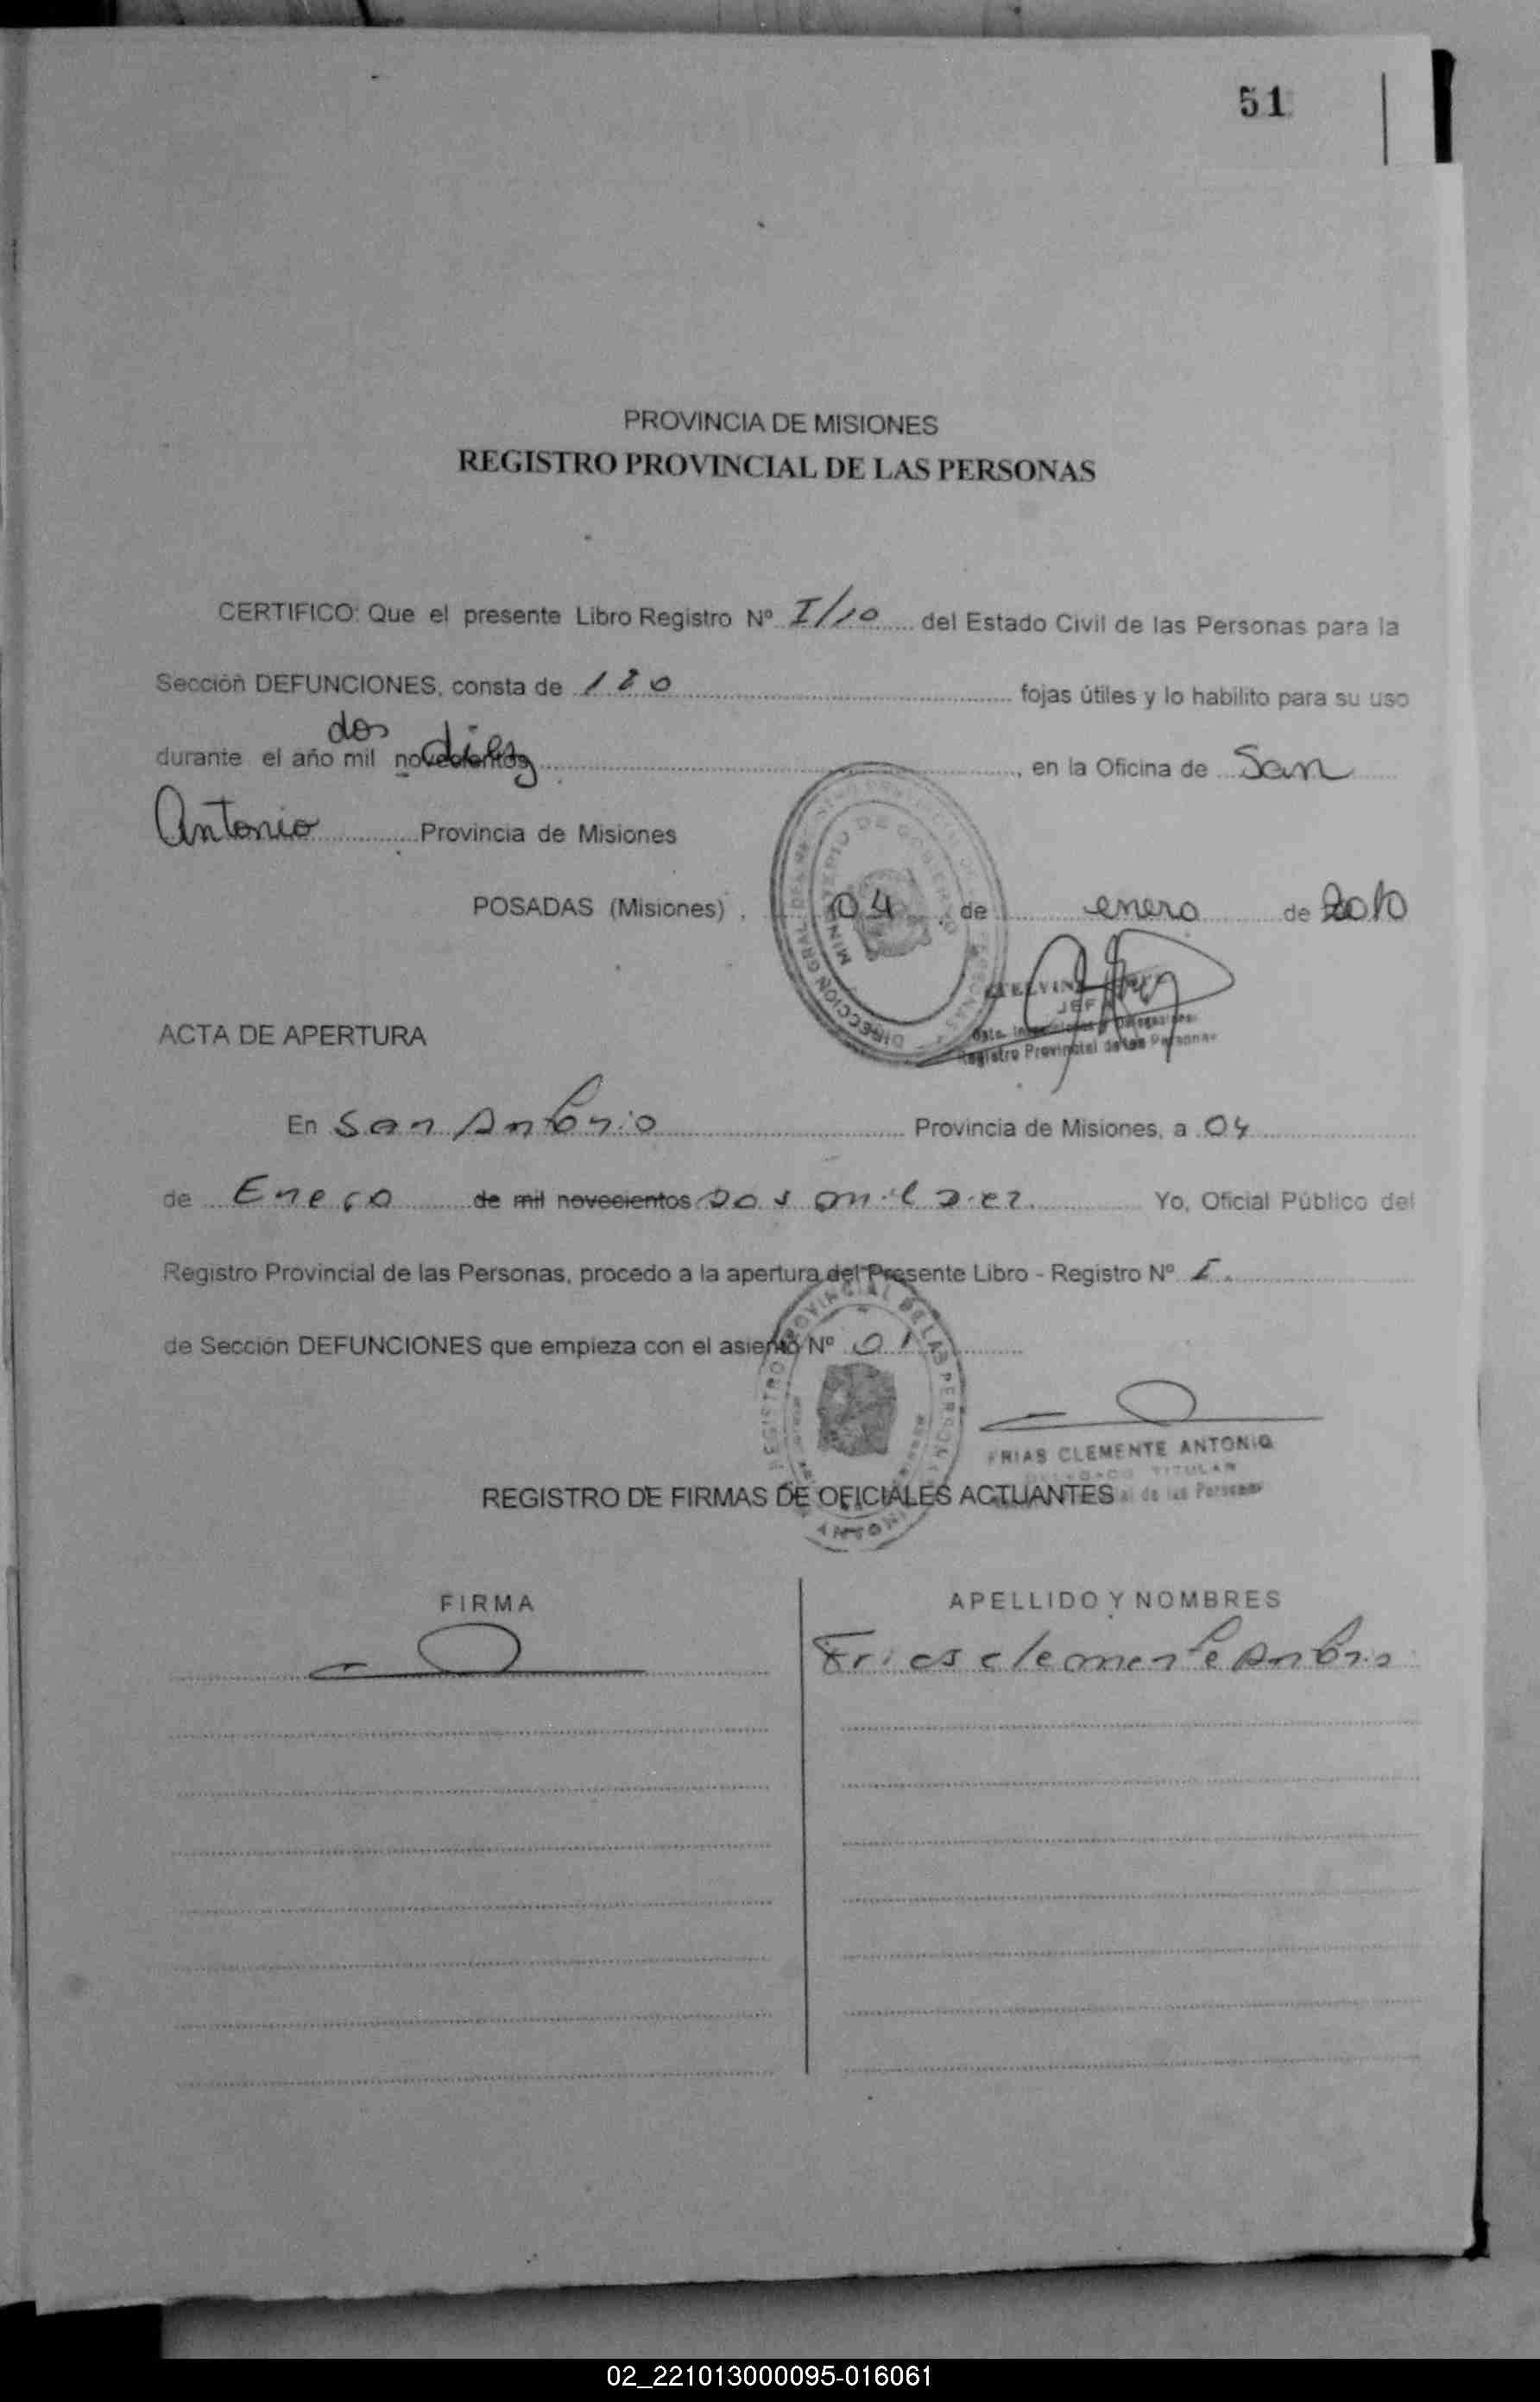 51
PROVINCIA DE MISIONES
REGISTRO PROVINCIAL DE LAS PERSONAS
CERTIFICO: Que el presente Libro Registro Nº I/10 del Estado Civil de las Personas para la
Sección DEFUNCIONES, consta de 120 fojas útiles y lo habilito para su uso
dos
durante el año mil novecientos diez, en la Oficina de San
Antonio Provincia de Misiones
POSADAS (Misiones), 04 de enero de 2010
JEFA
Registro Provincial de las Personas
ACTA DE APERTURA
En San Antonio Provincia de Misiones, a 04
de Enero de mil novecientos Dos mil Diez Yo, Oficial Público del
Registro Provincial de las Personas, procedo a la apertura del Presente Libro - Registro Nº I
de Sección DEFUNCIONES que empieza con el asiento Nº 01
FRIAS CLEMENTE ANTONIO
DELEGADO TITULAR
REGISTRO DE FIRMAS DE OFICIALES ACTUANTES
FIRMA APELLIDO Y NOMBRES
Frias Clemente Antonio
02_221013000095-016061